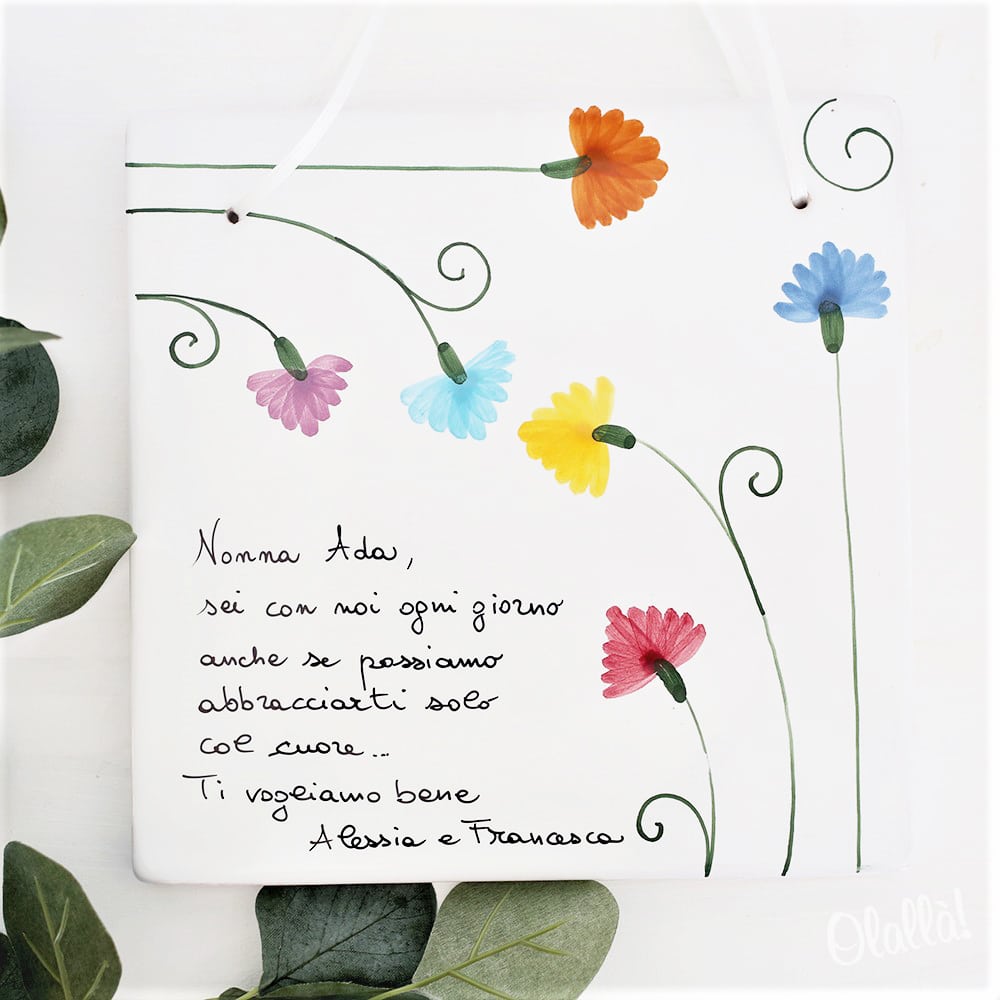 Nonna Ada,
sei con noi ogni giorno
anche se possiamo
abbracciarti solo
col cuore...
Ti vogliamo bene
Alessia e Francesca
Olallà!